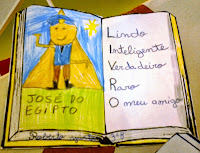 JOSÉ DO
EGIPTO
Lindo
Inteligente
Verdadeiro
Raro
O meu amigo